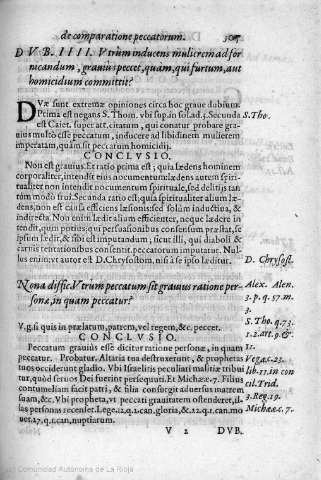 de comparatione peccatorum. 305
D V B. I I I I. Vtrùm inducens mulierem ad for
nicandum, grauiùs peccet, quàm, qui furtum, aut
homicidium committit?
DVæ sunt extremæ opiniones circa hoc graue dubium.
Prima est negans S. Thom. vbi sup. in sol. ad. 5. Secunda S. Tho.
est Caiet. super art. citatum, qui conatur probare gra-
uius multo esse peccatum, inducere ad libidinem mulierem
imperatam, quàm sit peccatum homicidij.
CONCLVSIO.
Non est grauius. Et ratio prima est; quia lædens hominem
corporaliter, intendit eius nocumentum: lædens autem spiri-
tualiter non intendit nocumentum spirituale, sed delitijs tan
tùm modo frui. Secunda ratio est; quia spiritualiter alium læ-
dens, non est causa efficiens læsionis: sed solùm inductiua, &
indirecta. Non enim lædit alium efficienter, neque lædere in
tendit, quin potius; qui persuasionibus consensum præstat, se
ipsum lædit, & sibi est imputandum; sicut illi, qui diaboli &
carnis tentationibus consentit, peccatorum imputatur. Nul
lus enim; vt autor est D. Chrysostom. nisi à se ipso læditur. D. Chrysost.
Nona diffic. Vtrum peccatum sit grauius ratione per-
sonæ, in quam peccatur?
Alex. Alen.
3. p. q. 57. m.
3.
S. Tho. q. 73.
1. 2. art. 9. &
V. g. si quis in prælatum, patrem, vel regem, &c. peccet.
CONCLVSIO.
Peccatum grauius esse dicitur ratione personæ, in quam
peccatur. Probatur. Altaria tua destruxerunt, & prophetas
tuos occiderunt gladio. Vbi Israelitis peculiari malitiæ tribui
tur, quòd seruos Dei fuerint persequuti. Et Michææ. 7. Filius
contumeliam facit patri, & filia consurgit aduersus matrem
suam, &c. Vbi propheta, vt peccati grauitatem ostenderet, il-
las personas recenset. Lege. 12. q. 1. can. gloria, & 12. q. 1. can. mo
uet. 17. q. 1. can, nuptiarum.
Vega. c. 23.
lib. 11. in con
cil. Trid.
3. Reg. 19.
Michææ c. 7.
V 2 DVB.
Comunidad Autónoma de La Rioja